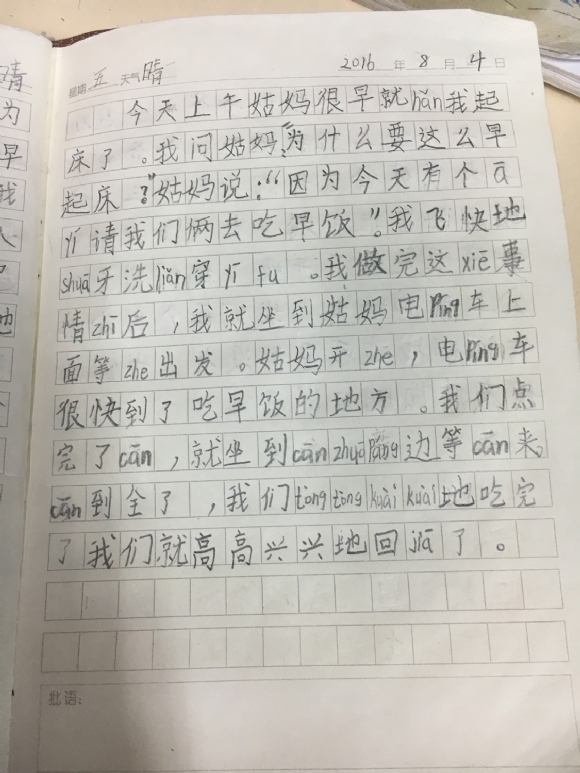 星期 五 天气 晴 2016 年 8 月 4 日
今天上午姑妈很早就hǎn我起
床了。我问姑妈“为什么要这么早
起床?”姑妈说:“因为今天有个ā
yí请我们俩去吃早饭”。我飞快地
shuā牙洗liǎn穿yī fu。我做完这xiē事
情zhī后,我就坐到姑妈电Píng车上
面等zhe出发。姑妈开zhe,电Píng车
很快到了吃早饭的地方。我们点
完了cān,就坐到cān zhuō páng边等cān来。
cān到全了,我们tòng tòng kuài kuài地吃完
了我们就高高兴兴地回jiā了。
批语: